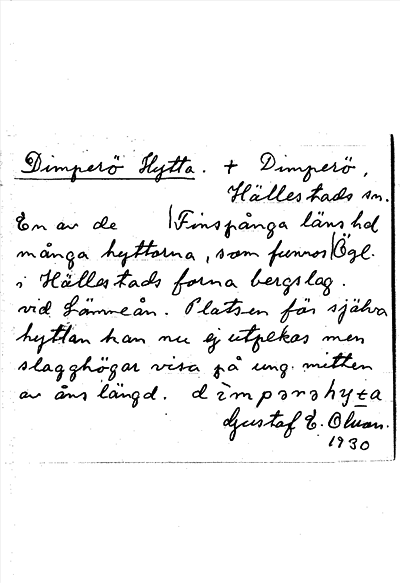 Dimperö Hytta. + Dimperö,
Hällestads sn.
En av de Finspånga läns hd
många hyttorna, som funnos Ögl.
i Hällestads forna bergslag.
vid Lämneån. Platsen för själva
hyttan kan nu ej utpekas men
slagghögar visa på ung. mitten
av åns längd. dimpərəhyta
Gustaf E. Olsson.
1930